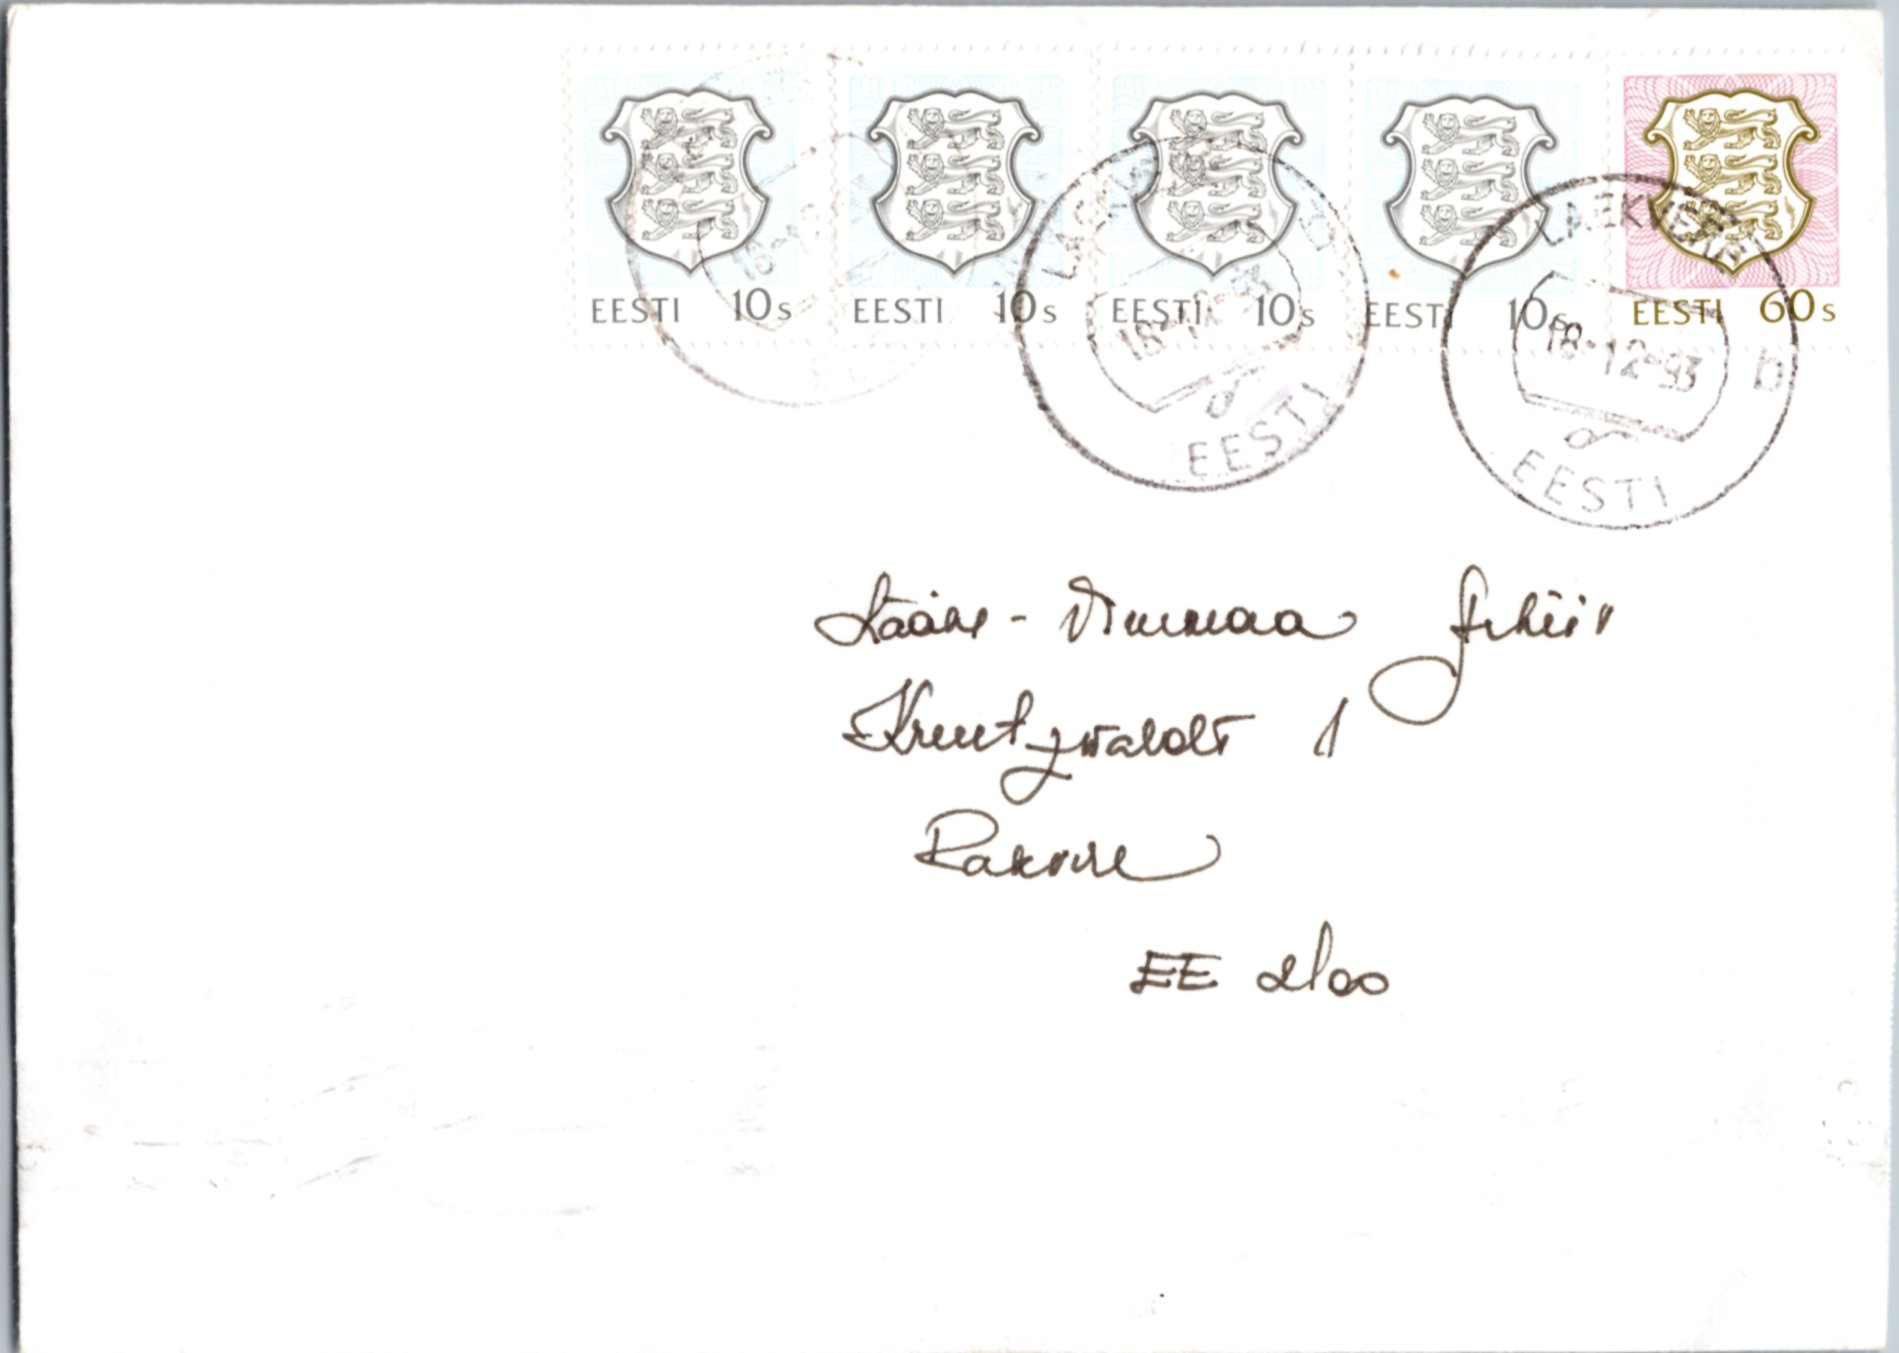 EESTI 10s EESTI 10s EESTI 10s EESTI 10s EESTI 60s
LAEKVERE
18-12-93 b
EESTI
EESTI
Lääne-Virumaa Arhiiv
Kreutzwaldi 1
Rakvere
EE 2100